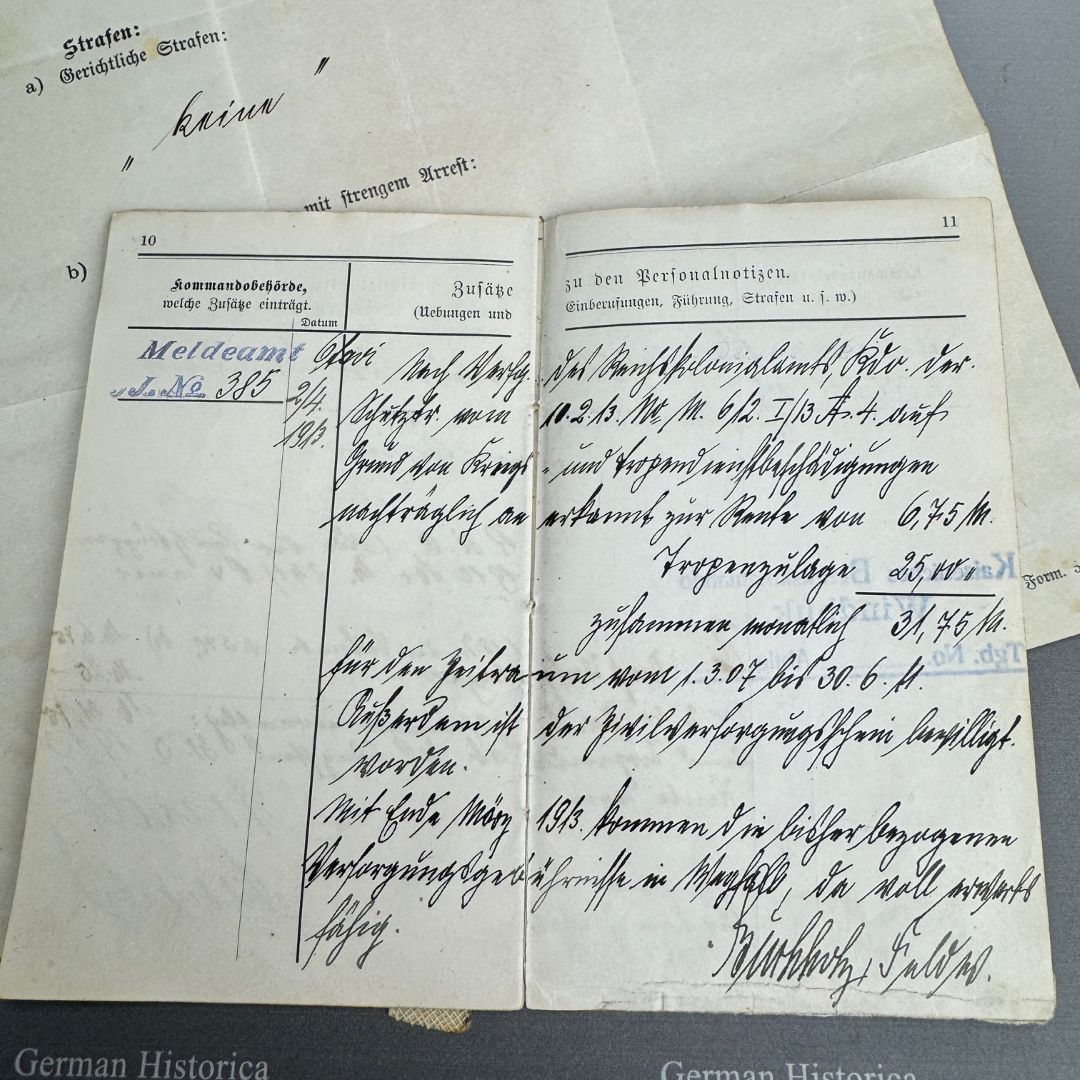 Strafen:
a) Gerichtliche Strafen:
" keine "
mit strengem Arrest:
b)
10
Kommandobehörde,
welche Zusätze einträgt.
Datum
Zusätze
(Uebungen und
11
zu den Personalnotizen.
Einberufungen, Führung, Strafen u. s. w.)
Meldeamt
J. No 385
2/4.
1913.
Nach Verfg. des Reichskolonialamts Kdo. der
Schutztr. vom 10.2.13. M. 612. I/13 A. 4. auf
Grund von Kriegs- und Tropendienstbeschädigungen
nachträglich anerkannt zur Rente von 6,75 M.
Tropenzulage 25,00 "
zusammen monatlich 31,75 M.
für den Zeitraum vom 1.3.07 bis 30.6.11.
Außerdem ist der Zivilversorgungsschein bewilligt
worden.
Mit Ende März 1913. kommen die bisher bezogenen
Versorgungsgebührnisse in Wegfall, da voll erwerbs
fähig.
Feldw.
Tgb. No.
Form.
German Historica
German Historica